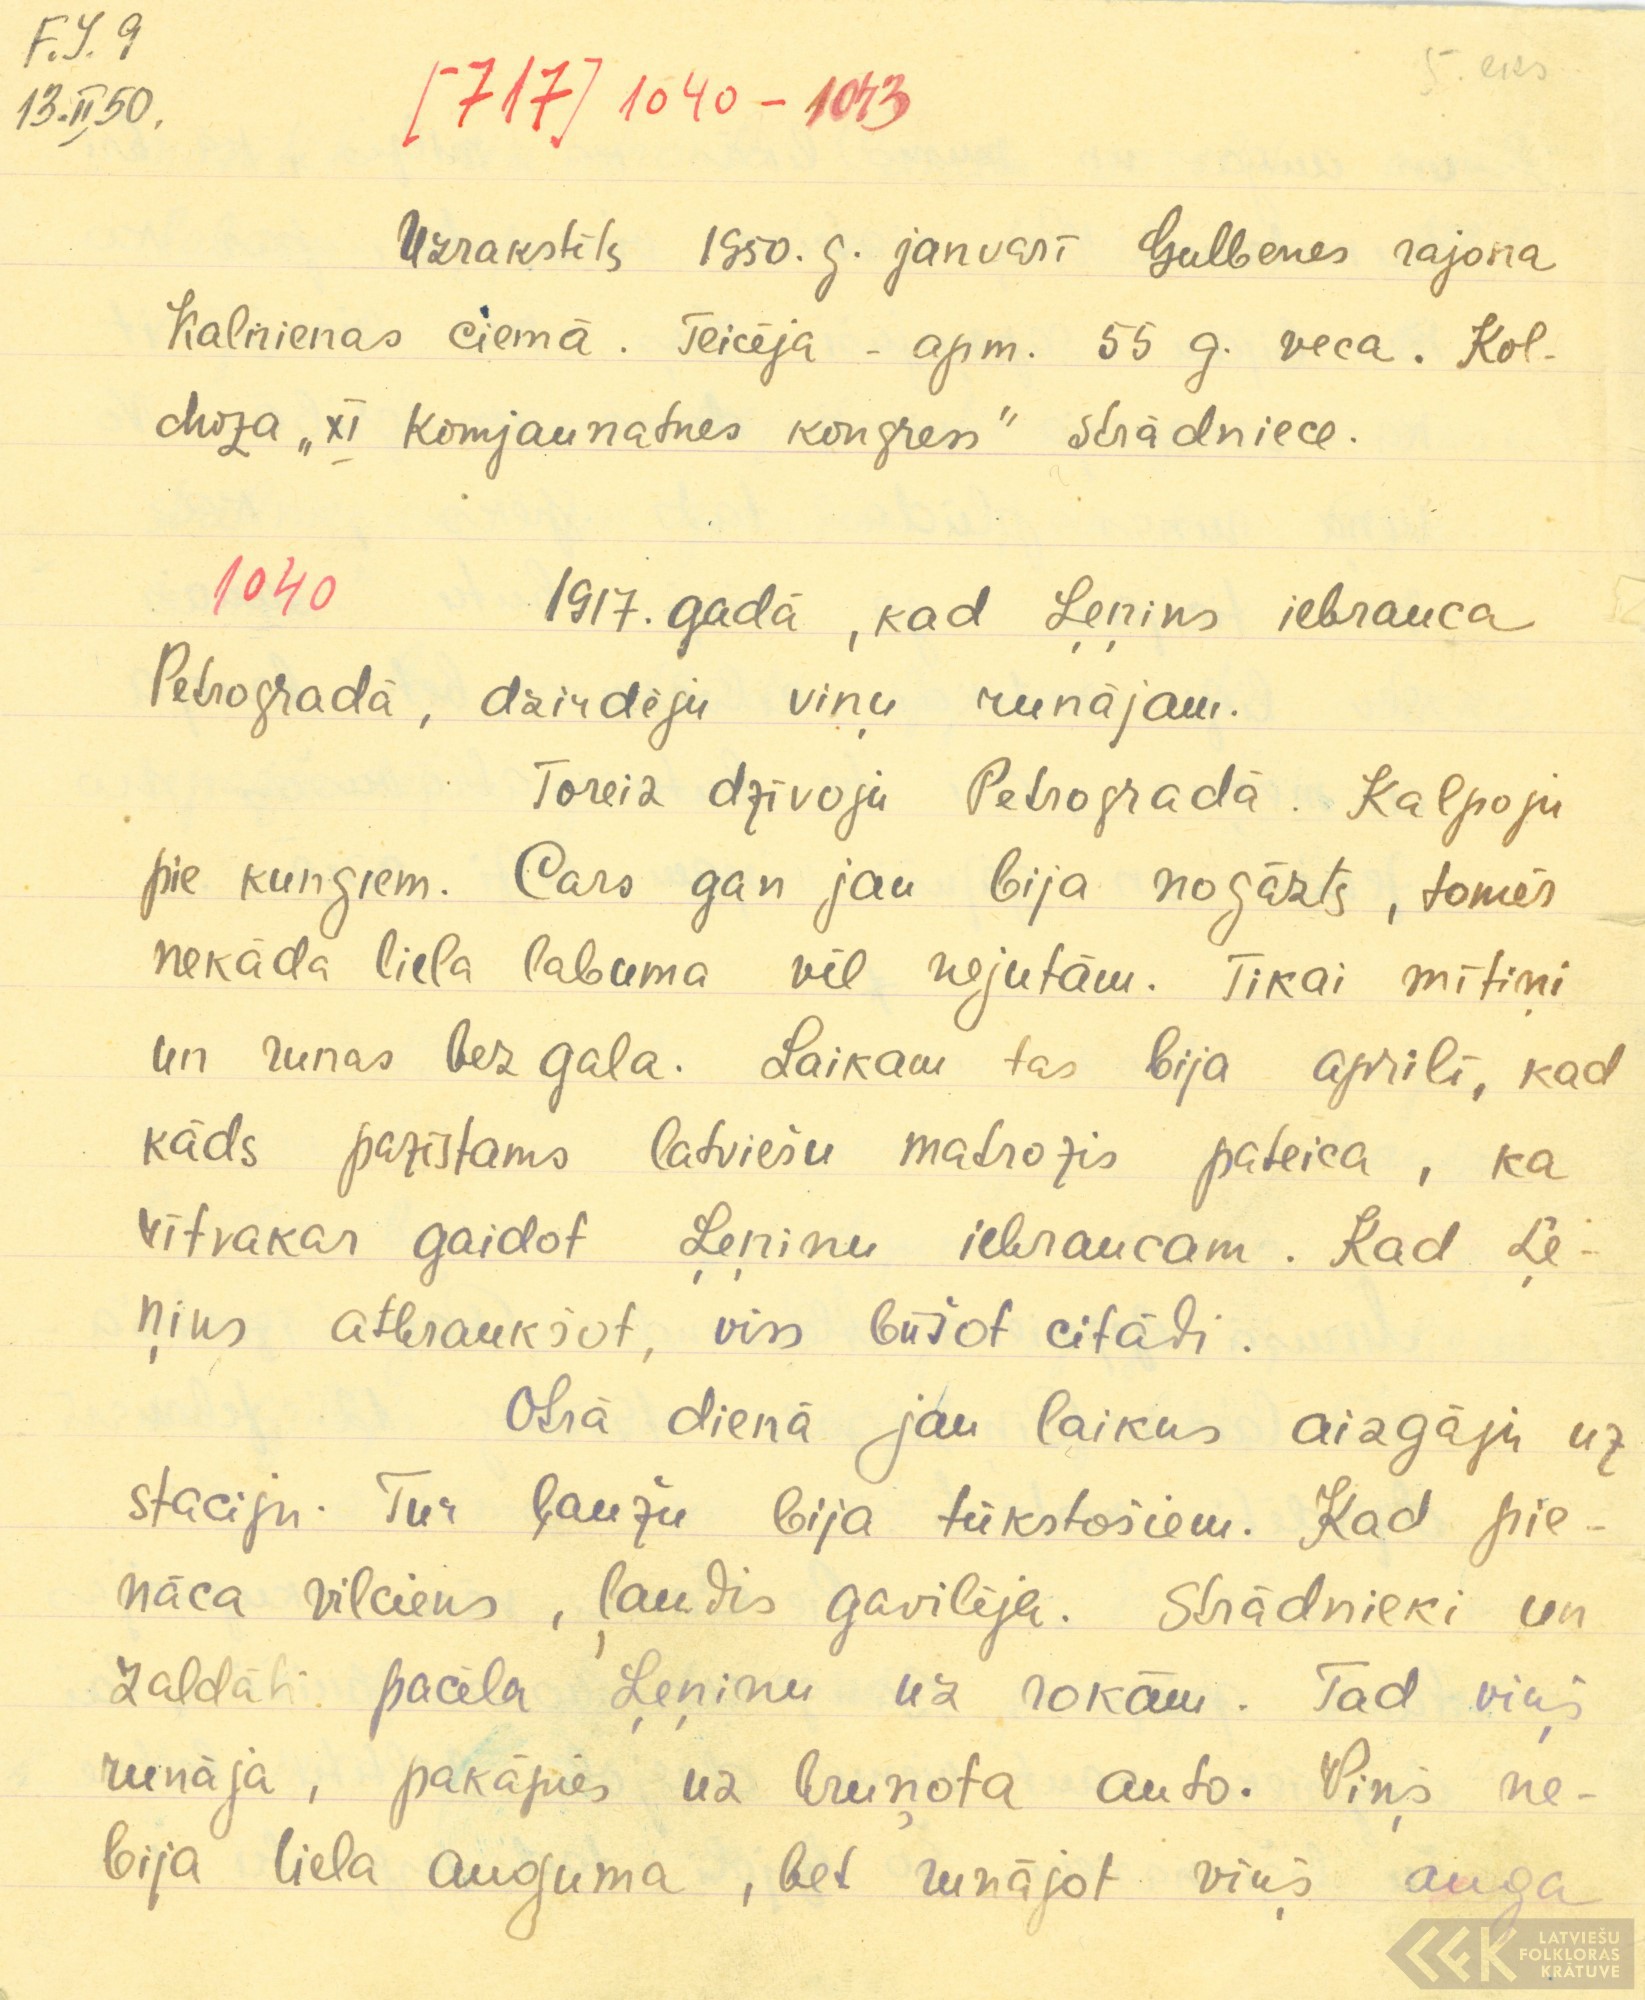 F.J. 9
13.II 50.
5. eks
[717] 1040 - 1043
Uzrakstīts 1950. g. janvarī Gulbenes rajona
Kalnienas ciemā. Teicēja - apm. 55 g. veca. Kol-
choza „XI Komjaunatnes kongress" strādniece.
1040
1917. gadā, kad Ļeņins iebrauca
Petrogradā, dzirdēju viņu runājam.
Toreiz dzīvoju Petrogradā. Kalpoju
pie kungiem. Cars gan jau bija nogāzts, tomēr
nekāda liela labuma vēl nejutām. Tikai mītiņi
un runas bez gala. Laikam tas bija aprilī, kad
kāds pazīstams latviešu matrozis pateica, ka
rītvakar gaidot Ļeņinu iebraucam. Kad Ļe-
ņins atbraukšot, viss būšot citādi.
Otrā dienā jau laikus aizgāju uz
staciju. Tur ļaužu bija tūkstošiem. Kad pie-
nāca vilciens, ļaudis gavilēja. Strādnieki un
zaldāti pacēla Ļeņinu uz rokām. Tad viņš
runāja, pakāpies uz bruņota auto. Viņš ne-
bija liela auguma, bet runājot viņš auga
LATVIEŠU
FOLKLORAS
KRĀTUVE